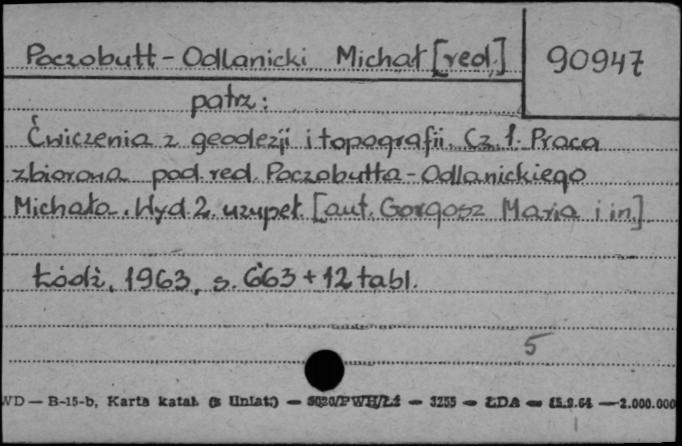 Poczobutt-Odlanicki Michał [red.] 90947
patrz:
Ćwiczenia z geodezji i topografii. Cz. 1. Praca
zbiorowa pod. red. Poczobutta-Odlanickiego
Michała. Wyd. 2. uzupeł. [aut. Gorgosz Maria i in.]
Łódź, 1963, s. 663 + 12 tabl.
5
WD — B-15-b, Karta katal. (z Uniat.) — 5020/PWH/Łź — 3255 — ŁDA — 15.9.64 — 2.000.000